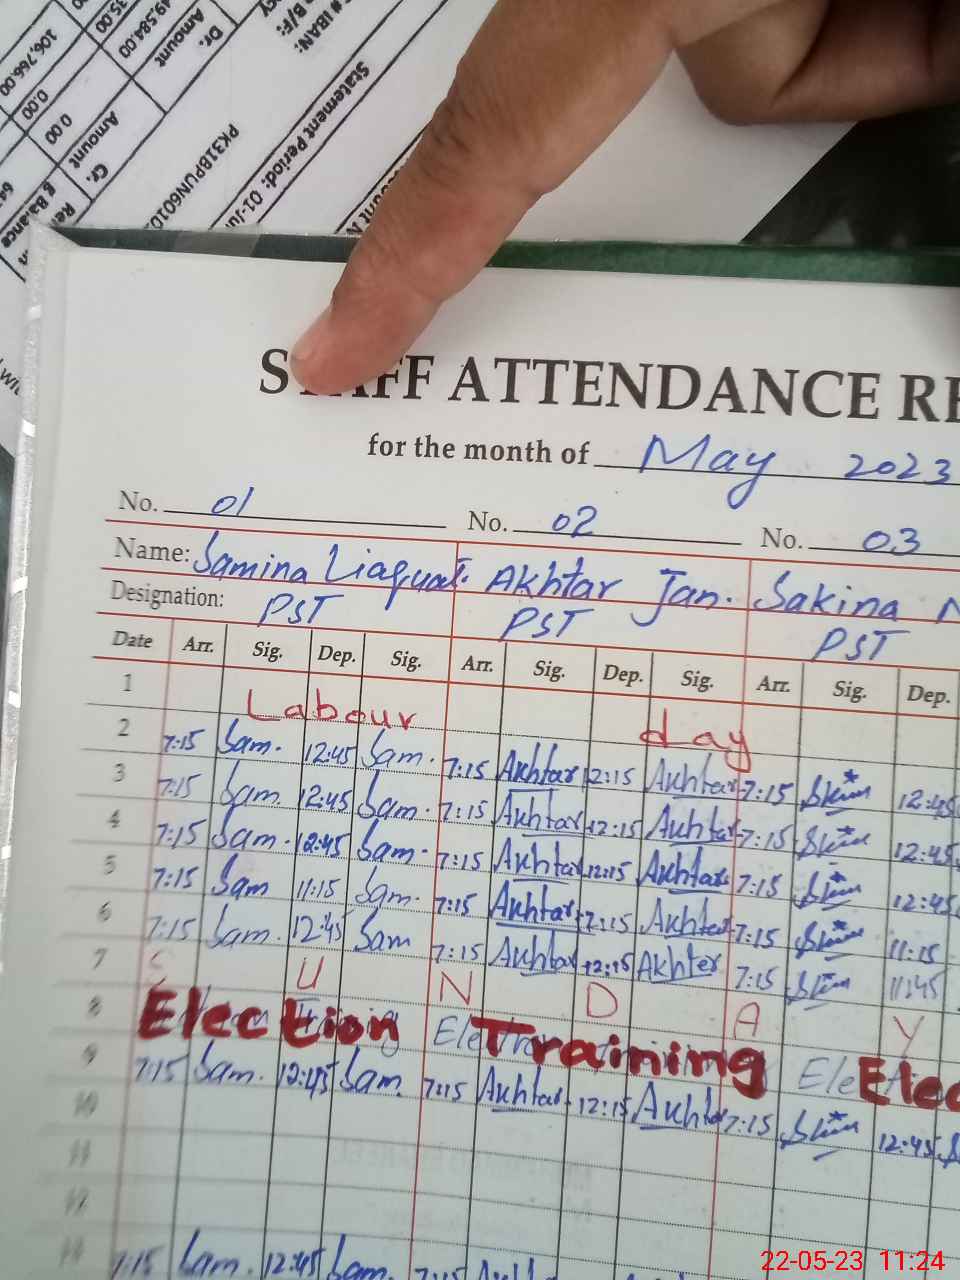 106,766.00
0.00
0.00
35.00
49,584.00
Amount
Dr.
Amount
Cr.
Balance
# IBAN:
B/F:
Statement Period: 01-Ju
PK31BPUN6010
STAFF ATTENDANCE RE
for the month of May 2023
No. 01 No. 02 No. 03
Name: Samina Liaquat. Akhtar Jan. Sakina N
Designation: PST PST PST
Date Arr. Sig. Dep. Sig. Arr. Sig. Dep. Sig. Arr. Sig. Dep.
1 Labour day
2 7:15 Sam. 12:45 Sam. 7:15 Akhtar 12:15 Akhtar 7:15 12:45
3 7:15 Sam. 12:45 Sam. 7:15 Akhtar 12:15 Akhtar 7:15 12:45
4 7:15 Sam. 12:45 Sam. 7:15 Akhtar 12:15 Akhtar 7:15 12:45
5 7:15 Sam 11:15 Sam. 7:15 Akhtar 12:15 Akhtar 7:15 11:15
6 7:15 Sam. 12:45 Sam 7:15 Akhtar 12:15 Akhter 7:15 11:45
7 S U N D A Y
8 Election Training Elec
9 7:15 Sam. 12:45 Sam. 7:15 Akhtar 12:15 Akhtar 7:15 12:45
10
11
12
7:15 Sam. 12:45 Sam. 7:15
22-05-23 11:24